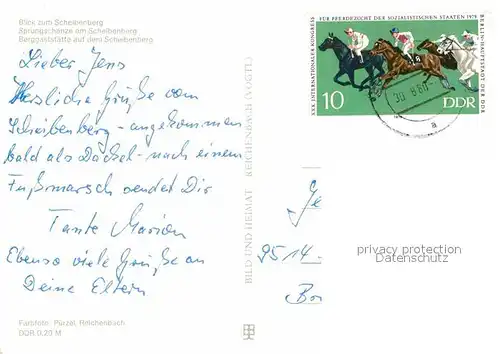 Blick zum Scheibenberg
Sprungschanze am Scheibenberg
Berggaststätte auf dem Scheibenberg
Lieber Jens
Herzliche Grüße vom
Scheibenberg - angekommen
bald als Dackel - nach einem
Fußmarsch sendet Dir
Tante Marion
Ebenso viele Grüße an
Deine Eltern
Farbfoto: Pürzel, Reichenbach
DDR 0,20 M
BILD UND HEIMAT REICHENBACH (VOGTL)
XXX. INTERNATIONALER KONGRESS FÜR PFERDEZUCHT DER SOZIALISTISCHEN STAATEN 1978
BERLIN-HAUPTSTADT DER DDR
10
DDR
a
Je
9514
Bor
privacy protection
Datenschutz